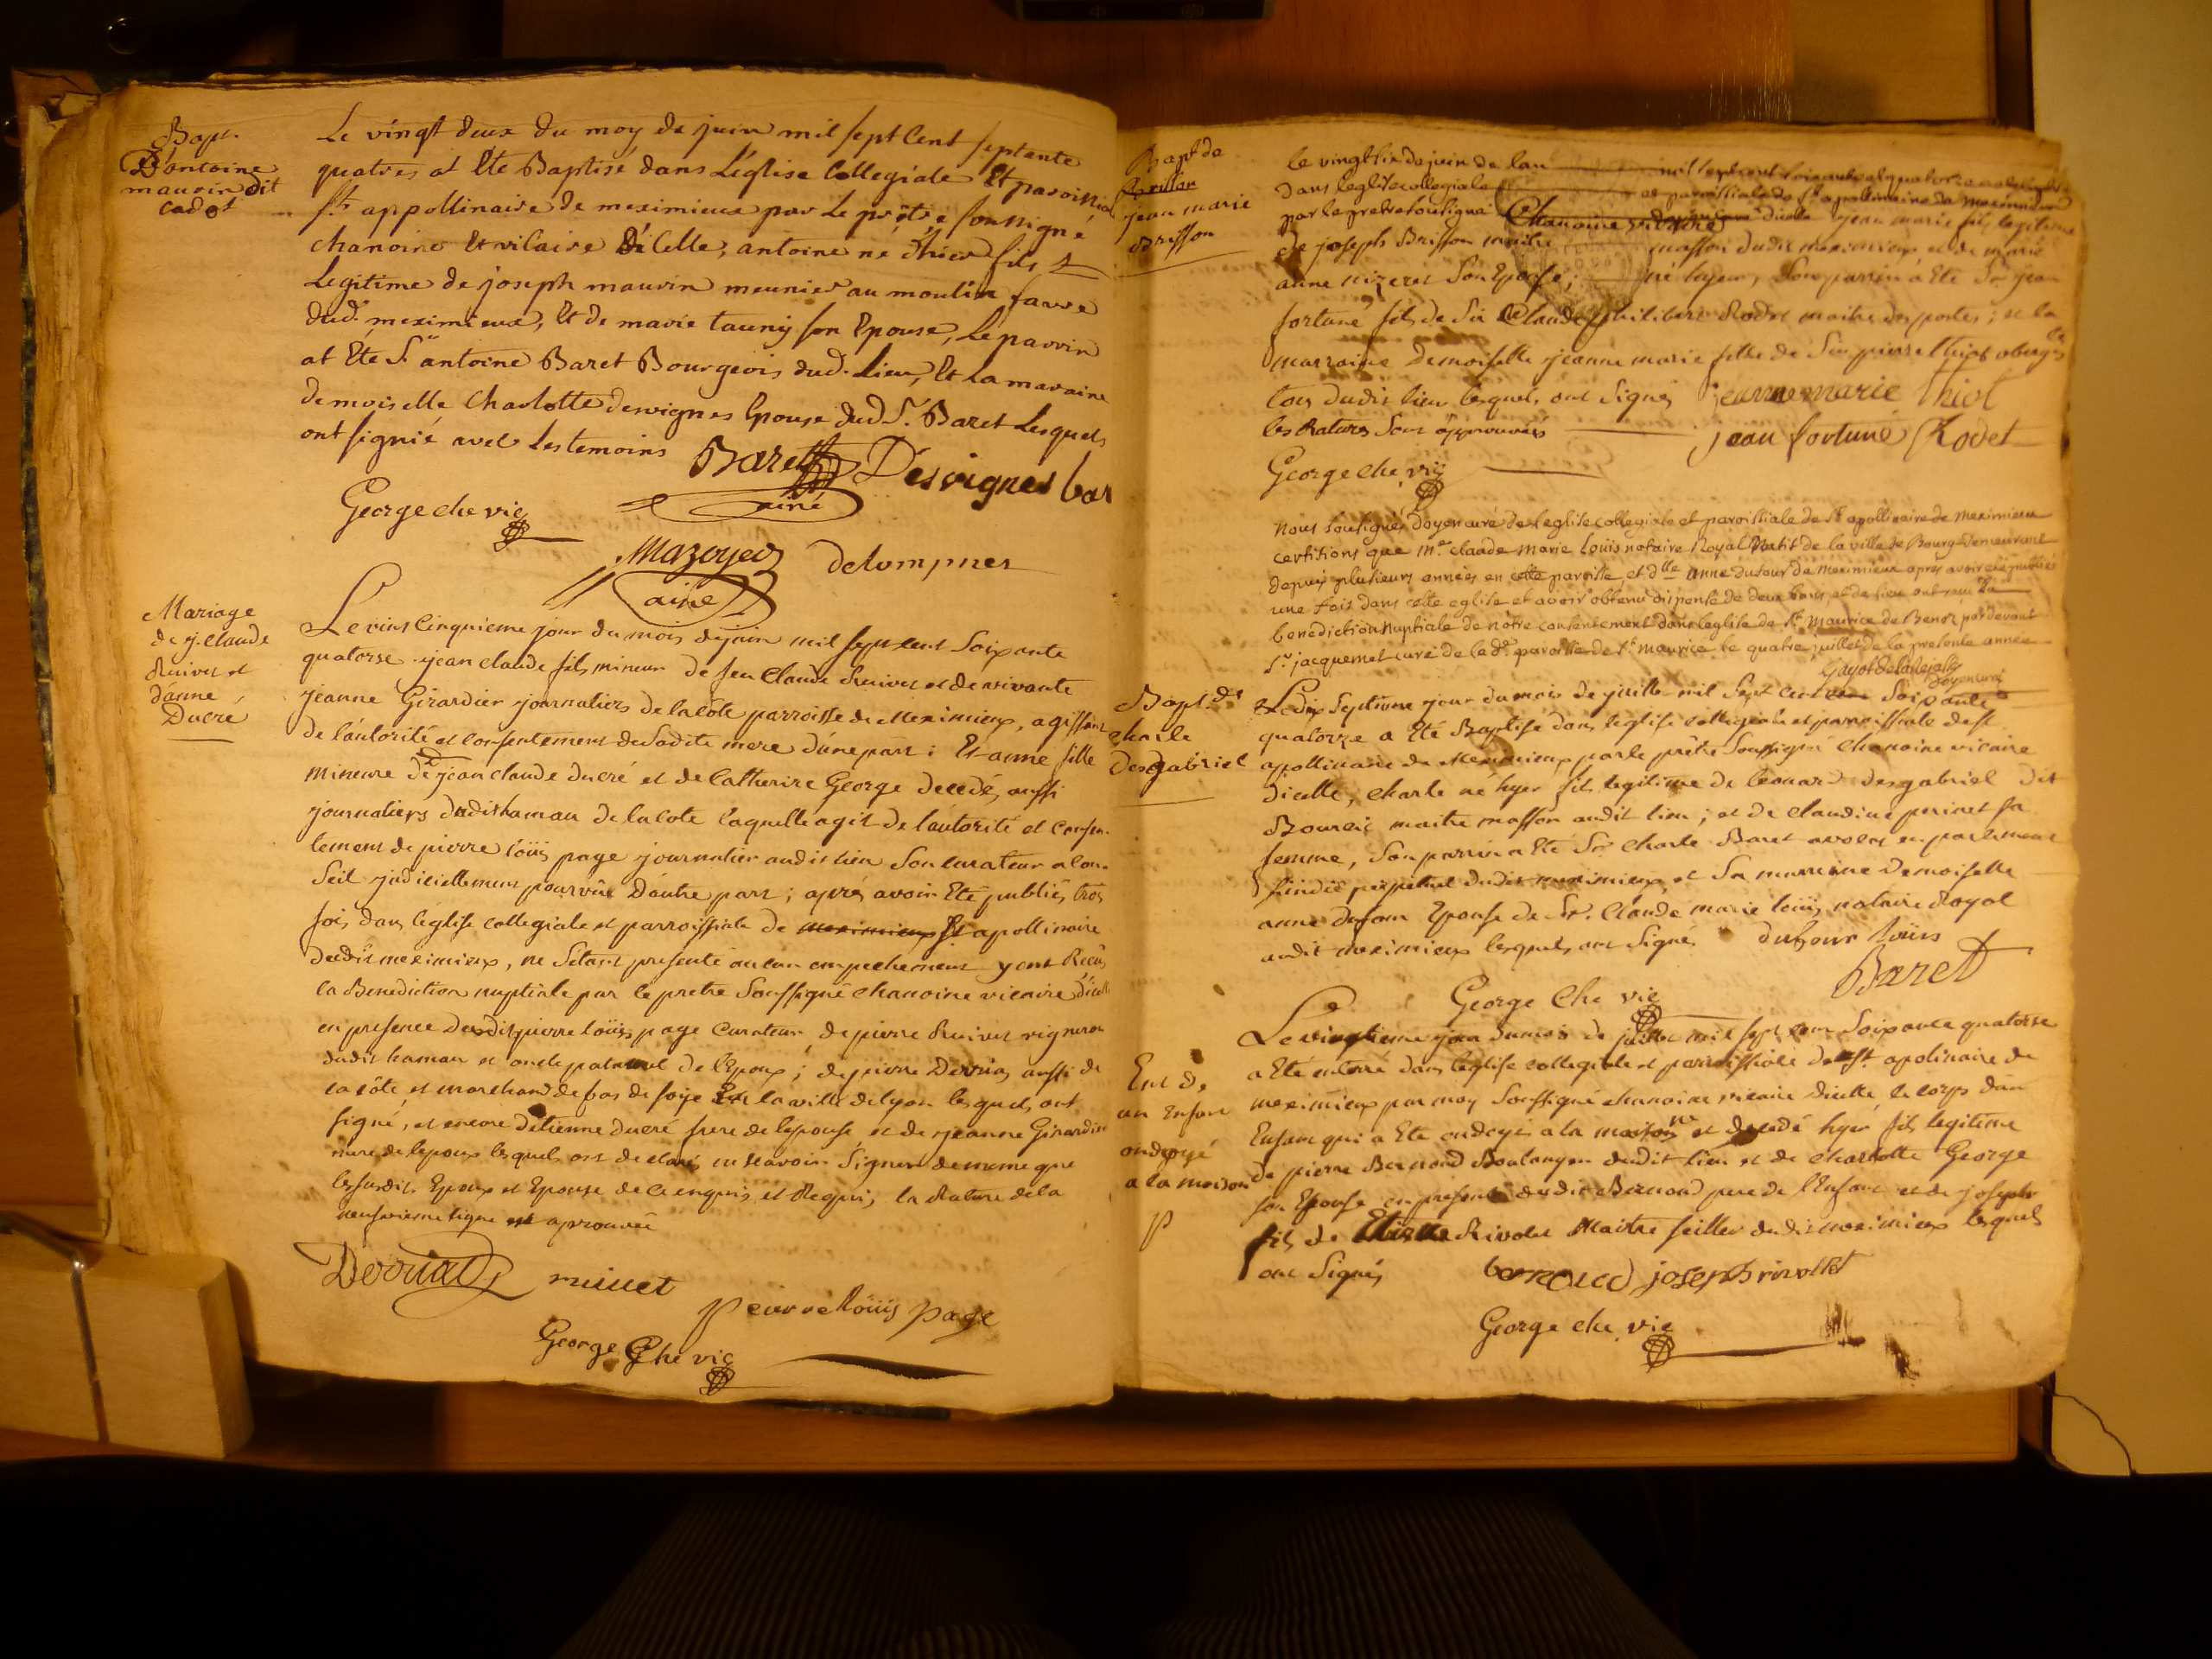 Bapt.
D'antoine
maurin dit
cadet
Le vingt deux du moy de juin mil sept Cent septante
quatres at Ete Baptisé dans L'église Collegiale Et paroissial
st appollinaire de meximieux par Le prêtre soussigné
chanoine Et vicaire D'icelle, antoine né d'hier fils
Legitime de joseph maurin meunier au moulin farre
dud. meximieux, Et de marie tauny son Epouse, Le parrin
at Ete Sr antoine Baret Bourgeois dud. Lieu, Et La maraine
demoiselle Charlotte desvignes Epouse dud Sr. Baret Lesquels
ont signié avec Les temoins
Baret Desvignes bar
ainé
George che vic
Mazoyer delompnes
ainé
Mariage
de j. claude
Ruivet et
d'anne
Ducré
Le vint Cinquieme jour du mois de juin mil sept cent Soixante
quatorse jean claude fils mineur de feu Claude Ruivet et de vivante
jeanne Girardier journaliers de la côte parroisse de Meximieux, agissant
de l'autorité et consentement de Sadite mere d'une part : Et anne fille
mineure de jean claude ducré et de Catherine George decedés aussi
journaliers dudit hamau de la cote laquelle agit de l'autorité et consen-
tement de pierre loüis page journalier audit lieu Son curateur a Con-
seil judiciellement pourvûe D'autre part ; aprés avoir Eté publiés trois
fois dans l'église collegiale et parroissiale de meximieux St apollinaire
dudit meximieux, ne S'etant presenté aucun empechement y ont Reçu
la Benediction nuptiale par le pretre Soussigné chanoine vicaire d'icelle
en presence dudit pierre loüis page Curateur, de pierre Ruivet vigneron
dudit hamau et oncle paternel de l'Epoux ; de pierre Derriaz aussi de
la côte, et marchand de bas de soye de la ville de lyon lesquels ont
signé, et encore d'etienne Ducré frere de l'epouse et de jeanne Girardier
mere de lepoux lesquels ont declaré ne sçavoir Signer de meme que
lesusdits Epoux et Epouse de ce enquis et Requis, la Rature de la
neuvieme ligne est aprouvée
Derriat ruivet
pierre loüis page
George Che vic
Bapt de
jean marie
Brisson
le vingt six de juin de lan mil sept cent soixante et quatorze a eté baptisé
dans leglise collegiale et paroissiale de St apollinaire de meximieux
par le pretre soussigné Chanoine vicaire d'icelle jean marie fils legitime
de joseph Brisson maitre masson dudit meximieux et de marie
anne nizeret Son Epouse ; né ce jour, Son parrin a Eté Sr jean
fortuné fils de Sir Claude philibert Rodet maitre des postes ; et la
marraine Demoiselle jeanne marie fille de Sir pierre Thiot
dudit lieu lesquels ont Signés jeanne marie Thiot
les Ratures Sont approuvées jean fortuné Rodet
George che vic
Nous soussigné doyen curé de l'eglise collegiale et paroissiale de St apollinaire de Meximieux
certifions que Me claude marie Loüis notaire Royal Natif de la ville de Bourg demeurant
depuis plusieurs années en cette paroisse, et dlle anne dufour de meximieux après avoir été publiés
une fois dans cette eglise et avoir obtenu dispense de deux bans, et de lieu ont reçu la
benediction Nuptiale de notre consentement dans leglise de St maurice de Benoz pardevant
Sr jacquemet curé de la de paroisse de St maurice le quatre juillet de la presente année
doyen curé
Bapt. de
charle
desgabriel
Le dix Septieme jour du mois de juillet mil Sept cent Soixante
quatorze a Eté Baptisé dans l'eglise collegiale et parroissiale de St
apollinaire de Meximieux par le prêtre Soussigné chanoine vicaire
dicelle, charle né hyer fils legitime de léonard desgabriel dit
maitre masson audit lieu ; et de claudine perinet Sa
femme, Son parrin a Eté Sr charle Baret avocat en parlement
sindic perpetuel dudit meximieux, et Sa marraine Demoiselle
anne dufour Epouse de Sr. Claude marie loüis notaire Royal
audit meximieux lesquels ont Signé. dufour loüis
Baret
George Che vic
Ent de
un Enfant
ondoyé
a la maison
Le vingtieme jour du mois de juillet mil sept cent Soixante quatorse
a Eté enterré dans leglise collegiale et parroissiale de St. apolinaire de
meximieux par moy Soussigné chanoine vicaire d'icelle le corps d'un
Enfant qui a Eté ondoyé a la maison et decedé hyer fils legitime
de pierre Bernord Boulanger dudit lieu et de charlotte George
son Epouse en presence dudit Bernord pere de l'Enfant et de joseph
fils de Rivolet Maitre seillier dudit meximieux lesquels
ont Signés bernord joseph rivollet
George che vic